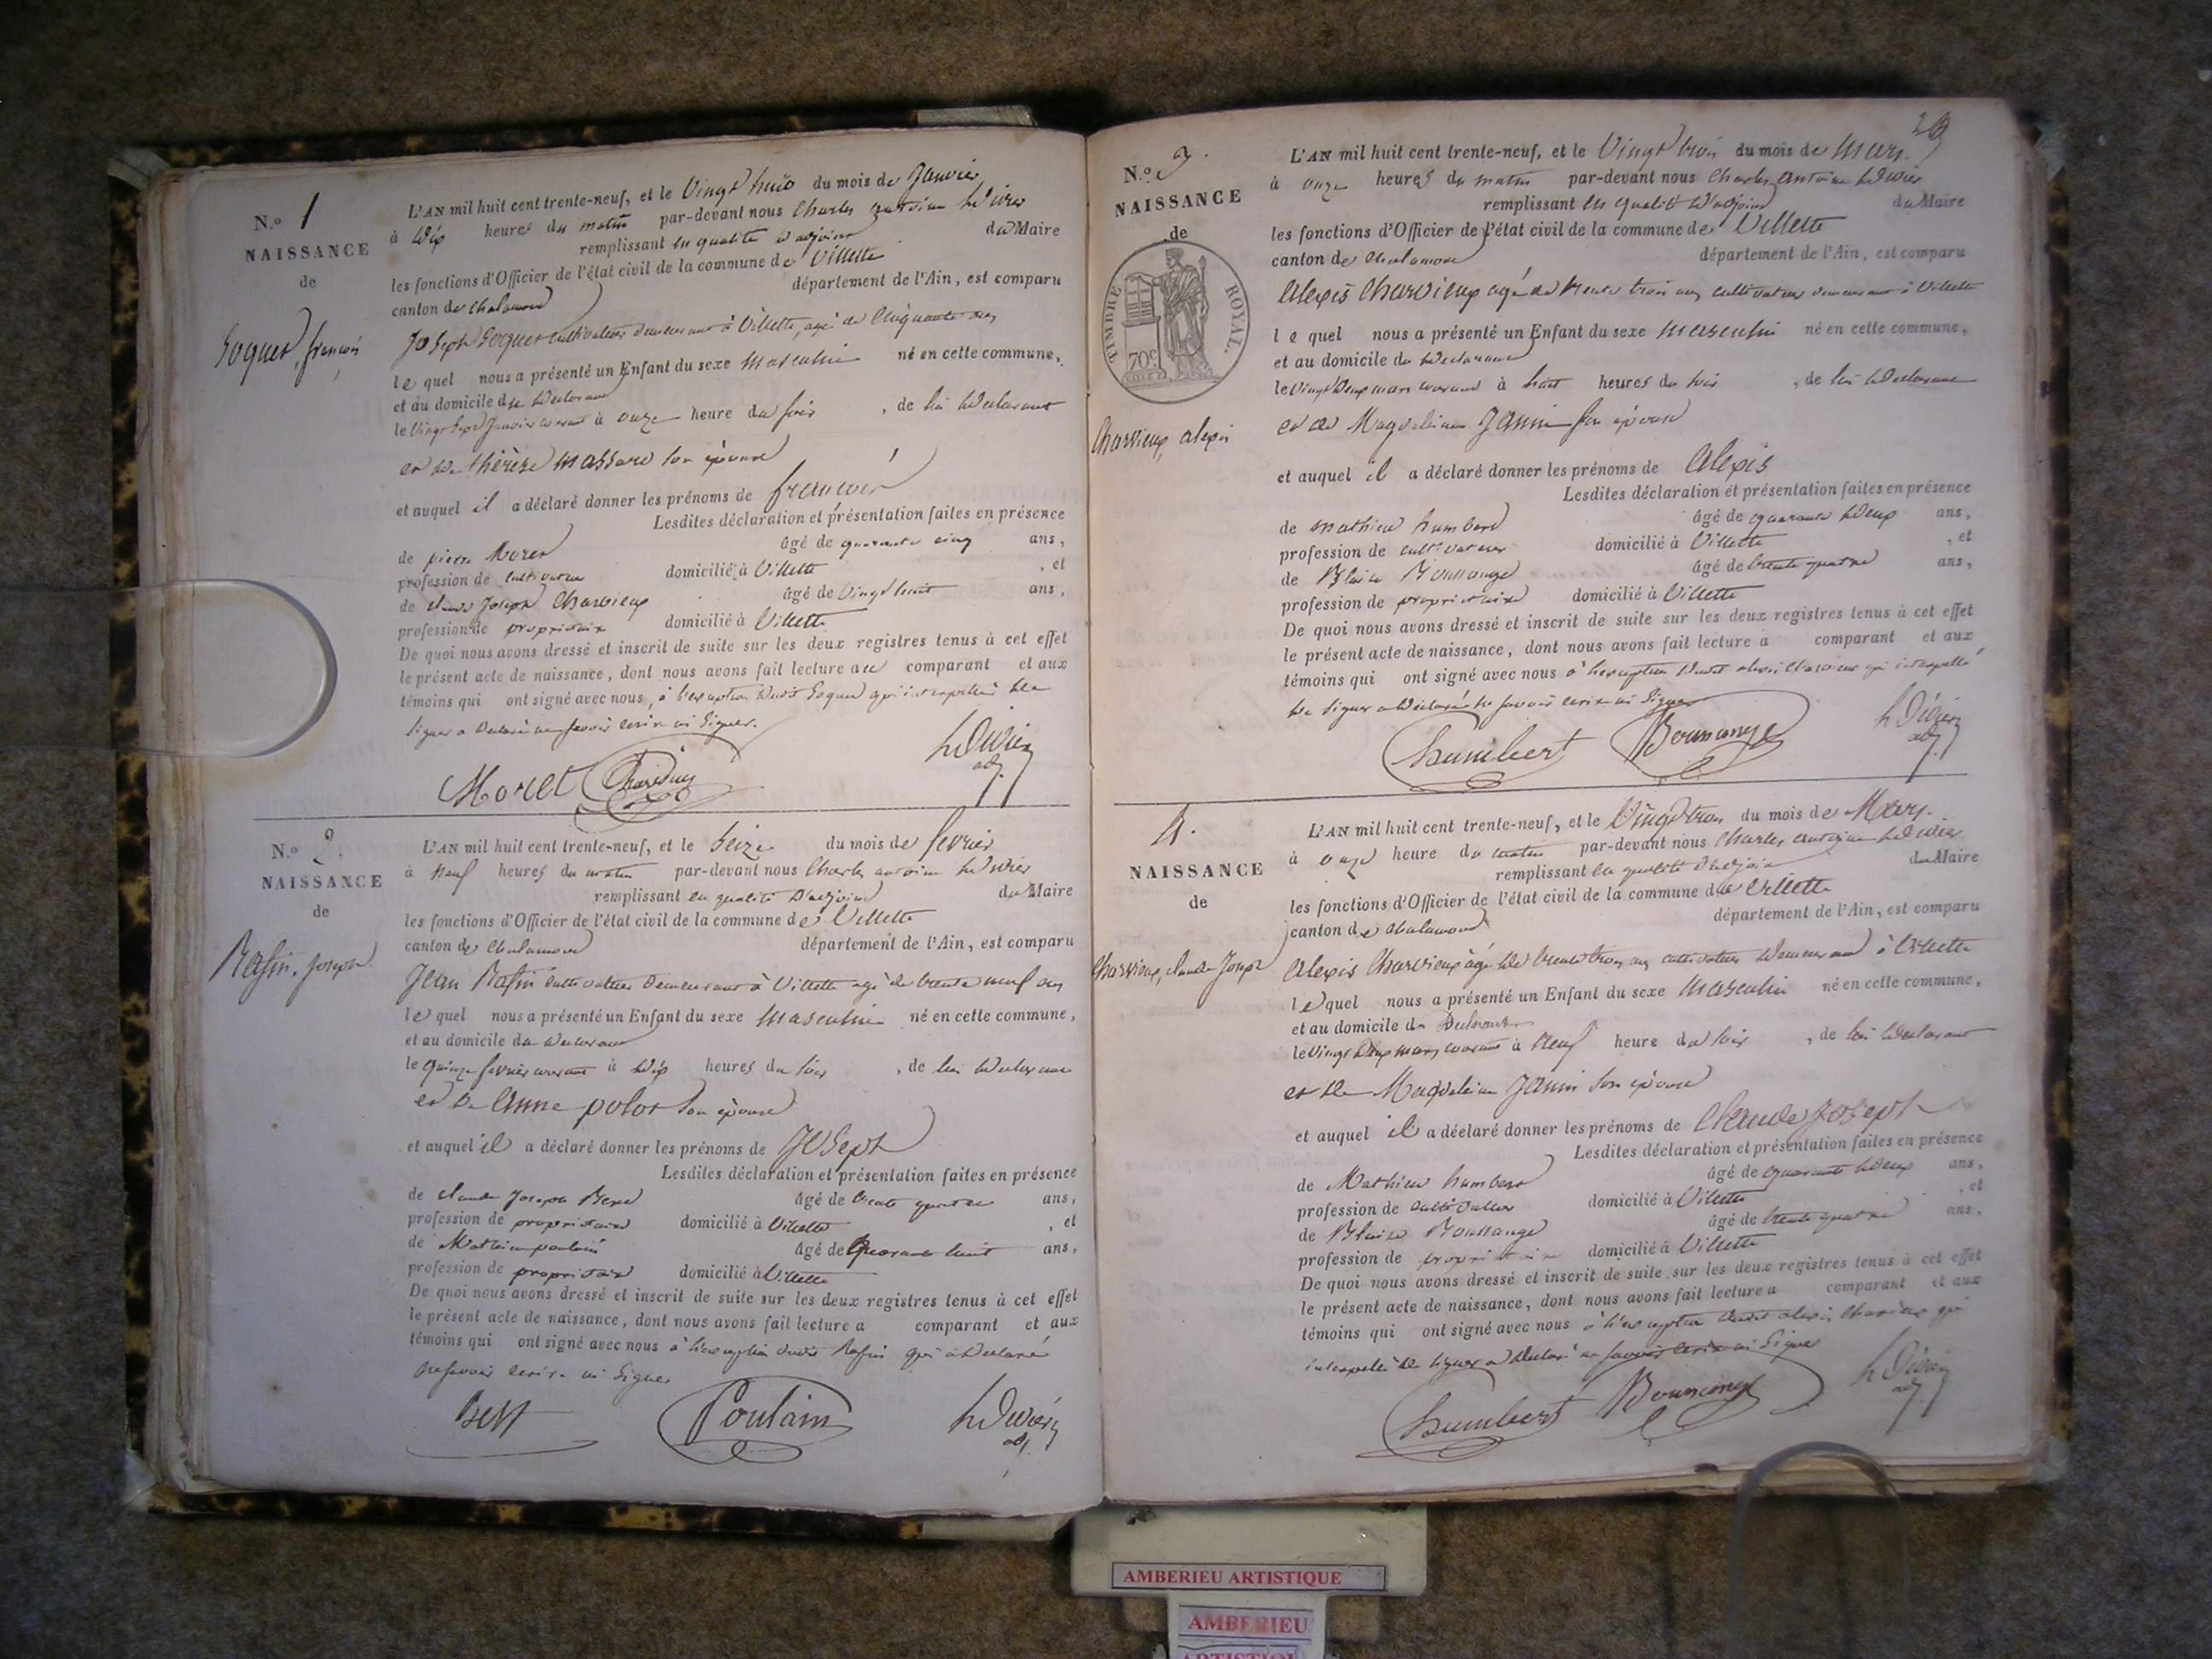 N.o 1
NAISSANCE
de
Goquet, françois
L'AN mil huit cent trente-neuf, et le Vingt huit du mois de Janvier
à dix heures du matin par-devant nous Charles antoine
remplissant en qualité d'adjoint du Maire
les fonctions d'Officier de l'état civil de la commune de Villette
canton de Chalamont département de l'Ain, est comparu
Joseph Goquet cultivateur demeurant à Villette, agé de Cinquante ans
le quel nous a présenté un Enfant du sexe masculin né en cette commune,
et au domicile du declarant
le Vingt Sept Janvier courant à onze heure du soir , de lui declarant
et de thérèse massard son épouse
et auquel il a déclaré donner les prénoms de françois
Lesdites déclaration et présentation faites en présence
de pierre Moret âgé de quarante cinq ans,
profession de cultivateur domicilié à Villette , et
de claude Joseph Charvieux âgé de vingt huit ans,
profession de propriétaire domicilié à Villette
De quoi nous avons dressé et inscrit de suite sur les deux registres tenus à cet effet
le présent acte de naissance, dont nous avons fait lecture au comparant et aux
témoins qui ont signé avec nous, à l'exception dudit Goquet qui interpellé de
signer a declaré ne savoir ecrire ni signer.
Moret Charvieux
adj.
N.o 2.
NAISSANCE
de
Rafin, Joseph
L'AN mil huit cent trente-neuf, et le Seize du mois de fevrier
à neuf heures du matin par-devant nous Charles antoine
remplissant en qualité D'adjoint du Maire
les fonctions d'Officier de l'état civil de la commune de Villette
canton de Chalamont département de l'Ain, est comparu
Jean Rafin cultivateur demeurant à Villette agé de trente neuf ans
le quel nous a présenté un Enfant du sexe masculin né en cette commune,
et au domicile du declarant
le quinze fevrier courant à dix heures du soir , de lui declarant
et de Anne polot son épouse
et auquel il a déclaré donner les prénoms de Joseph
Lesdites déclaration et présentation faites en présence
de claude Joseph âgé de trente quatre ans,
profession de propriétaire domicilié à Villette , et
de Mathieu poulain âgé de Quarante huit ans,
profession de propriétaire domicilié à Villette
De quoi nous avons dressé et inscrit de suite sur les deux registres tenus à cet effet
le présent acte de naissance, dont nous avons fait lecture a comparant et aux
témoins qui ont signé avec nous à l'exception dudit Rafin qui a declaré
ne savoir ecrire ni signer
Poulain
adj.
N.o 3.
NAISSANCE
de
TIMBRE ROYAL.
70c
Charvieux, alexis
L'AN mil huit cent trente-neuf, et le Vingt trois du mois de Mars.
à onze heures du matin par-devant nous Charles Antoine
remplissant en qualité d'adjoint du Maire
les fonctions d'Officier de l'état civil de la commune de Villette
canton de Chalamont département de l'Ain, est comparu
Alexis Charvieux agé de trente trois ans cultivateur demeurant à Villette
le quel nous a présenté un Enfant du sexe masculin né en cette commune,
et au domicile du declarant
le vingt deux mars courant à huit heures du soir , de lui declarant
et de Magdelaine Janin son épouse
et auquel il a déclaré donner les prénoms de Alexis
Lesdites déclaration et présentation faites en présence
de mathieu humbert âgé de quarante deux ans,
profession de cultivateur domicilié à Villette , et
de Blaise Boussange âgé de trente quatre ans,
profession de propriétaire domicilié à Villette
De quoi nous avons dressé et inscrit de suite sur les deux registres tenus à cet effet
le présent acte de naissance, dont nous avons fait lecture a comparant et aux
témoins qui ont signé avec nous à l'exception dudit alexis Charvieux qui interpellé
de signer a declaré ne savoir ecrire ni signer
humbert Boussange
adj.
4.
NAISSANCE
de
Charvieux, claude Joseph
L'AN mil huit cent trente-neuf, et le Vingt trois du mois de Mars.
à onze heure du matin par-devant nous Charles antoine
remplissant en qualité d'adjoint du Maire
les fonctions d'Officier de l'état civil de la commune de Villette
canton de Chalamont département de l'Ain, est comparu
Alexis Charvieux âgé de trente trois ans cultivateur demeurant à Villette
le quel nous a présenté un Enfant du sexe masculin né en cette commune,
et au domicile du Declarant
le vingt deux mars courant à neuf heure du soir , de lui declarant
et de Magdelaine Janin son épouse
et auquel il a déclaré donner les prénoms de Claude Joseph
Lesdites déclaration et présentation faites en présence
de Mathieu humbert âgé de quarante deux ans,
profession de cultivateur domicilié à Villette , et
de Blaise Boussange âgé de trente quatre ans,
profession de propriétaire domicilié à Villette
De quoi nous avons dressé et inscrit de suite sur les deux registres tenus à cet effet
le présent acte de naissance, dont nous avons fait lecture a comparant et aux
témoins qui ont signé avec nous à l'exception dudit alexis Charvieux qui
interpellé de signer a declaré ne savoir ecrire ni signer
humbert Boussange
adj.
AMBERIEU ARTISTIQUE
AMBERIEU
ARTISTIQUE